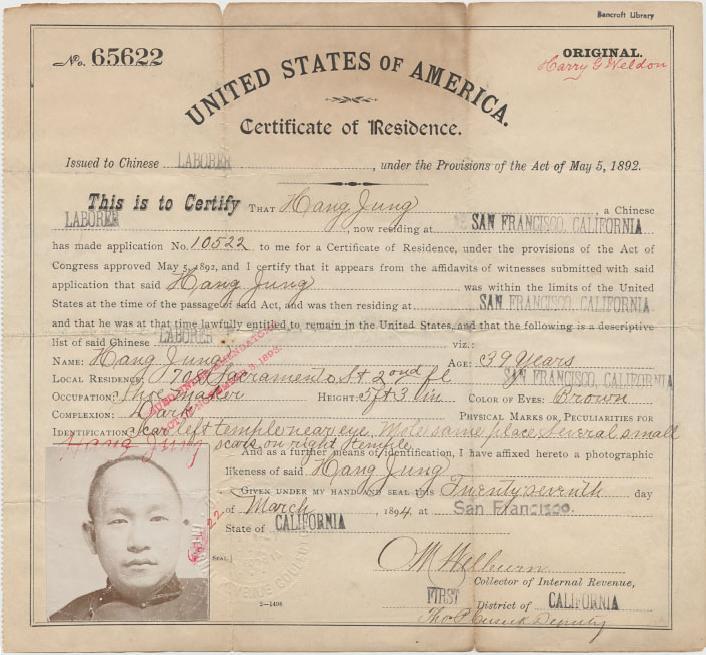 Bancroft Library
No. 65622
ORIGINAL.
Harry G Weldon
UNITED STATES OF AMERICA.
Certificate of Residence.
Issued to Chinese LABORER, under the Provisions of the Act of May 5, 1892.
This is to Certify THAT Hang Jung a Chinese
LABORER, now residing at SAN FRANCISCO, CALIFORNIA
has made application No. 10522 to me for a Certificate of Residence, under the provisions of the Act of
Congress approved May 5, 1892, and I certify that it appears from the affidavits of witnesses submitted with said
application that said Hang Jung was within the limits of the United
States at the time of the passage of said Act, and was then residing at SAN FRANCISCO, CALIFORNIA
and that he was at that time lawfully entitled to remain in the United States, and that the following is a descriptive
list of said Chinese LABORER viz.:
NAME: Hang Jung AGE: 39 Years
LOCAL RESIDENCE: Sacramento St 2ond fl SAN FRANCISCO, CALIFORNIA
OCCUPATION: Shoe maker HEIGHT: 5 ft 3 in COLOR OF EYES: Brown
COMPLEXION: Dark PHYSICAL MARKS OR PECULIARITIES FOR
IDENTIFICATION: Scar left temple near eye. Mole same place Several small
scars on right temple
ISSUED UNDER AMENDATORY
ACT OF NOVEMBER 3, 1893.
Hang Jung
And as a further means of identification, I have affixed hereto a photographic
likeness of said Hang Jung
GIVEN UNDER MY HAND AND SEAL this Twenty seventh day
of March, 1894, at San Francisco.
State of CALIFORNIA
SEAL.
O M Welburn
Collector of Internal Revenue,
FIRST District of CALIFORNIA
2—1496
Tho P Cusick Deputy